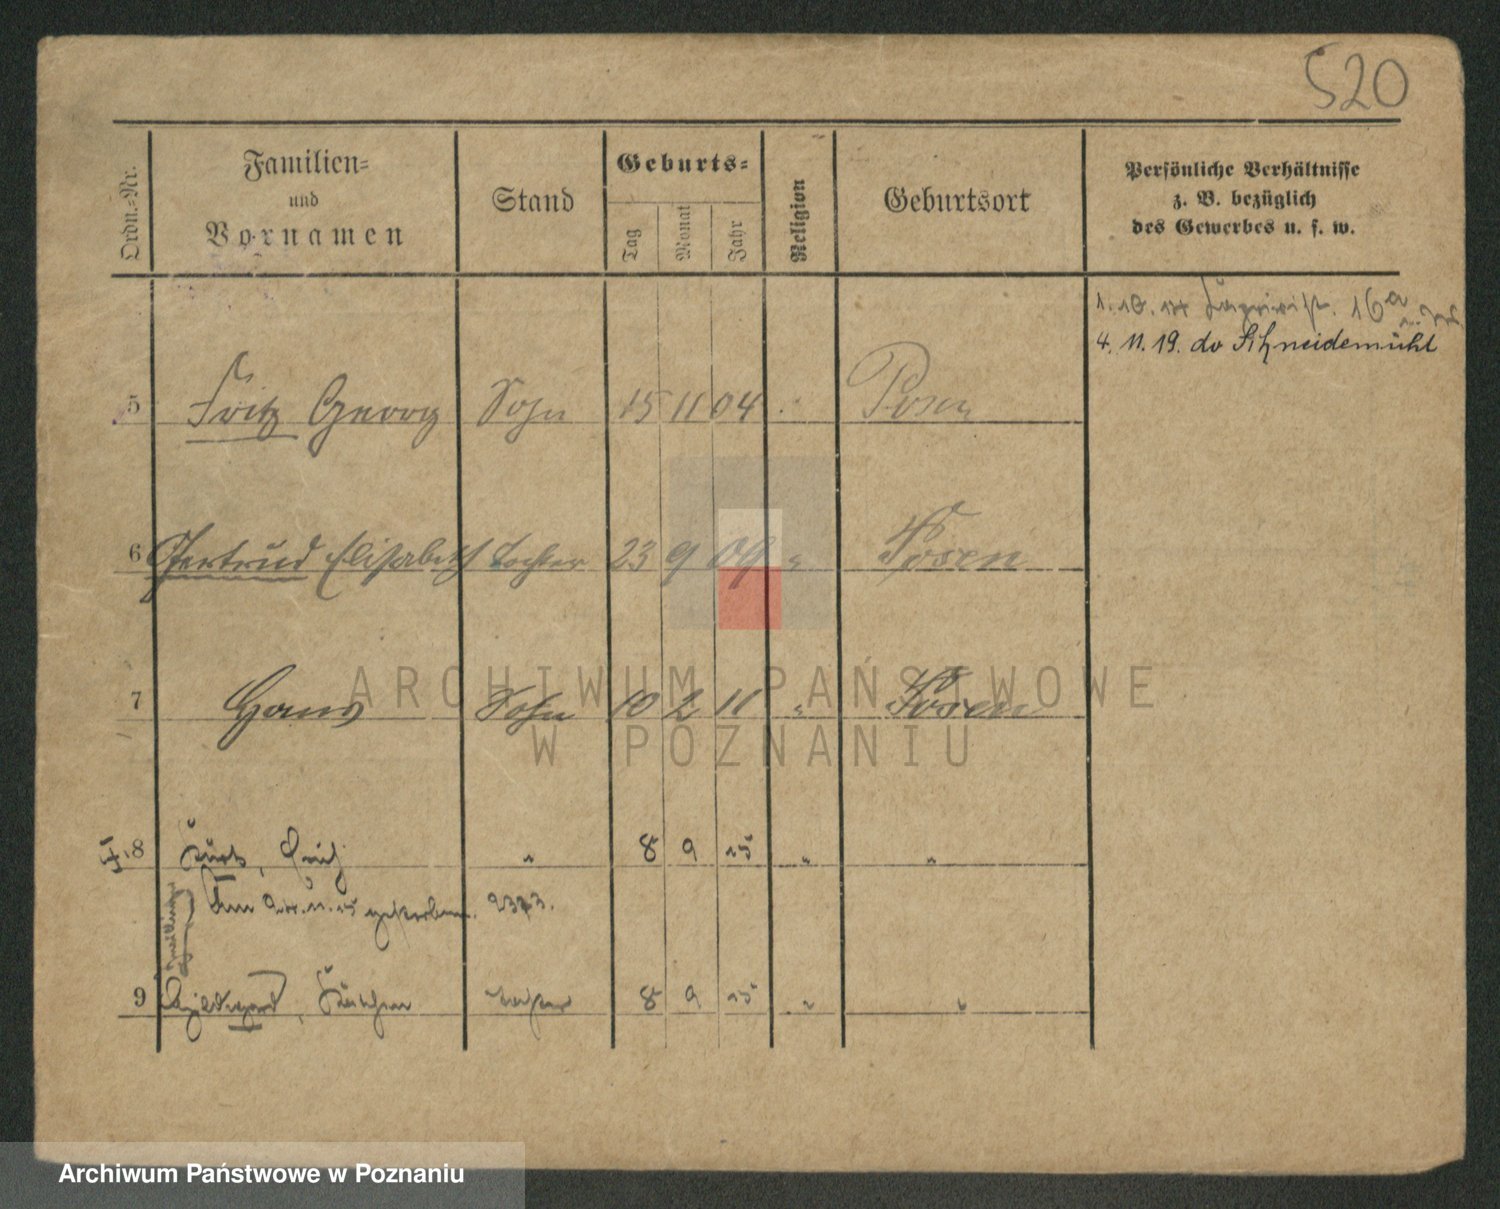 520
Ordn.-Nr.
Familien-
und
Vornamen
Stand
Geburts-
Tag
Monat
Jahr
Religion
Geburtsort
Persönliche Verhältnisse
z. B. bezüglich
des Gewerbes u. s. w.
1. 10. 17 16a
4. 11. 19. do Schneidemühl
5 Fritz Georg Sohn 15 11 04 " Posen
6 Gertrud Elisabeth Tochter 23 9 09 " Posen
7 Hans Sohn 10 2 11 " Posen
8 Kurt, Erich " 8 9 15 " "
Am 11. 15 gestorben. 2373.
Zwillinge
9 Hildegard, Käthchen Tochter 8 9 15 " "
ARCHIWUM PAŃSTWOWE
W POZNANIU
Archiwum Państwowe w Poznaniu